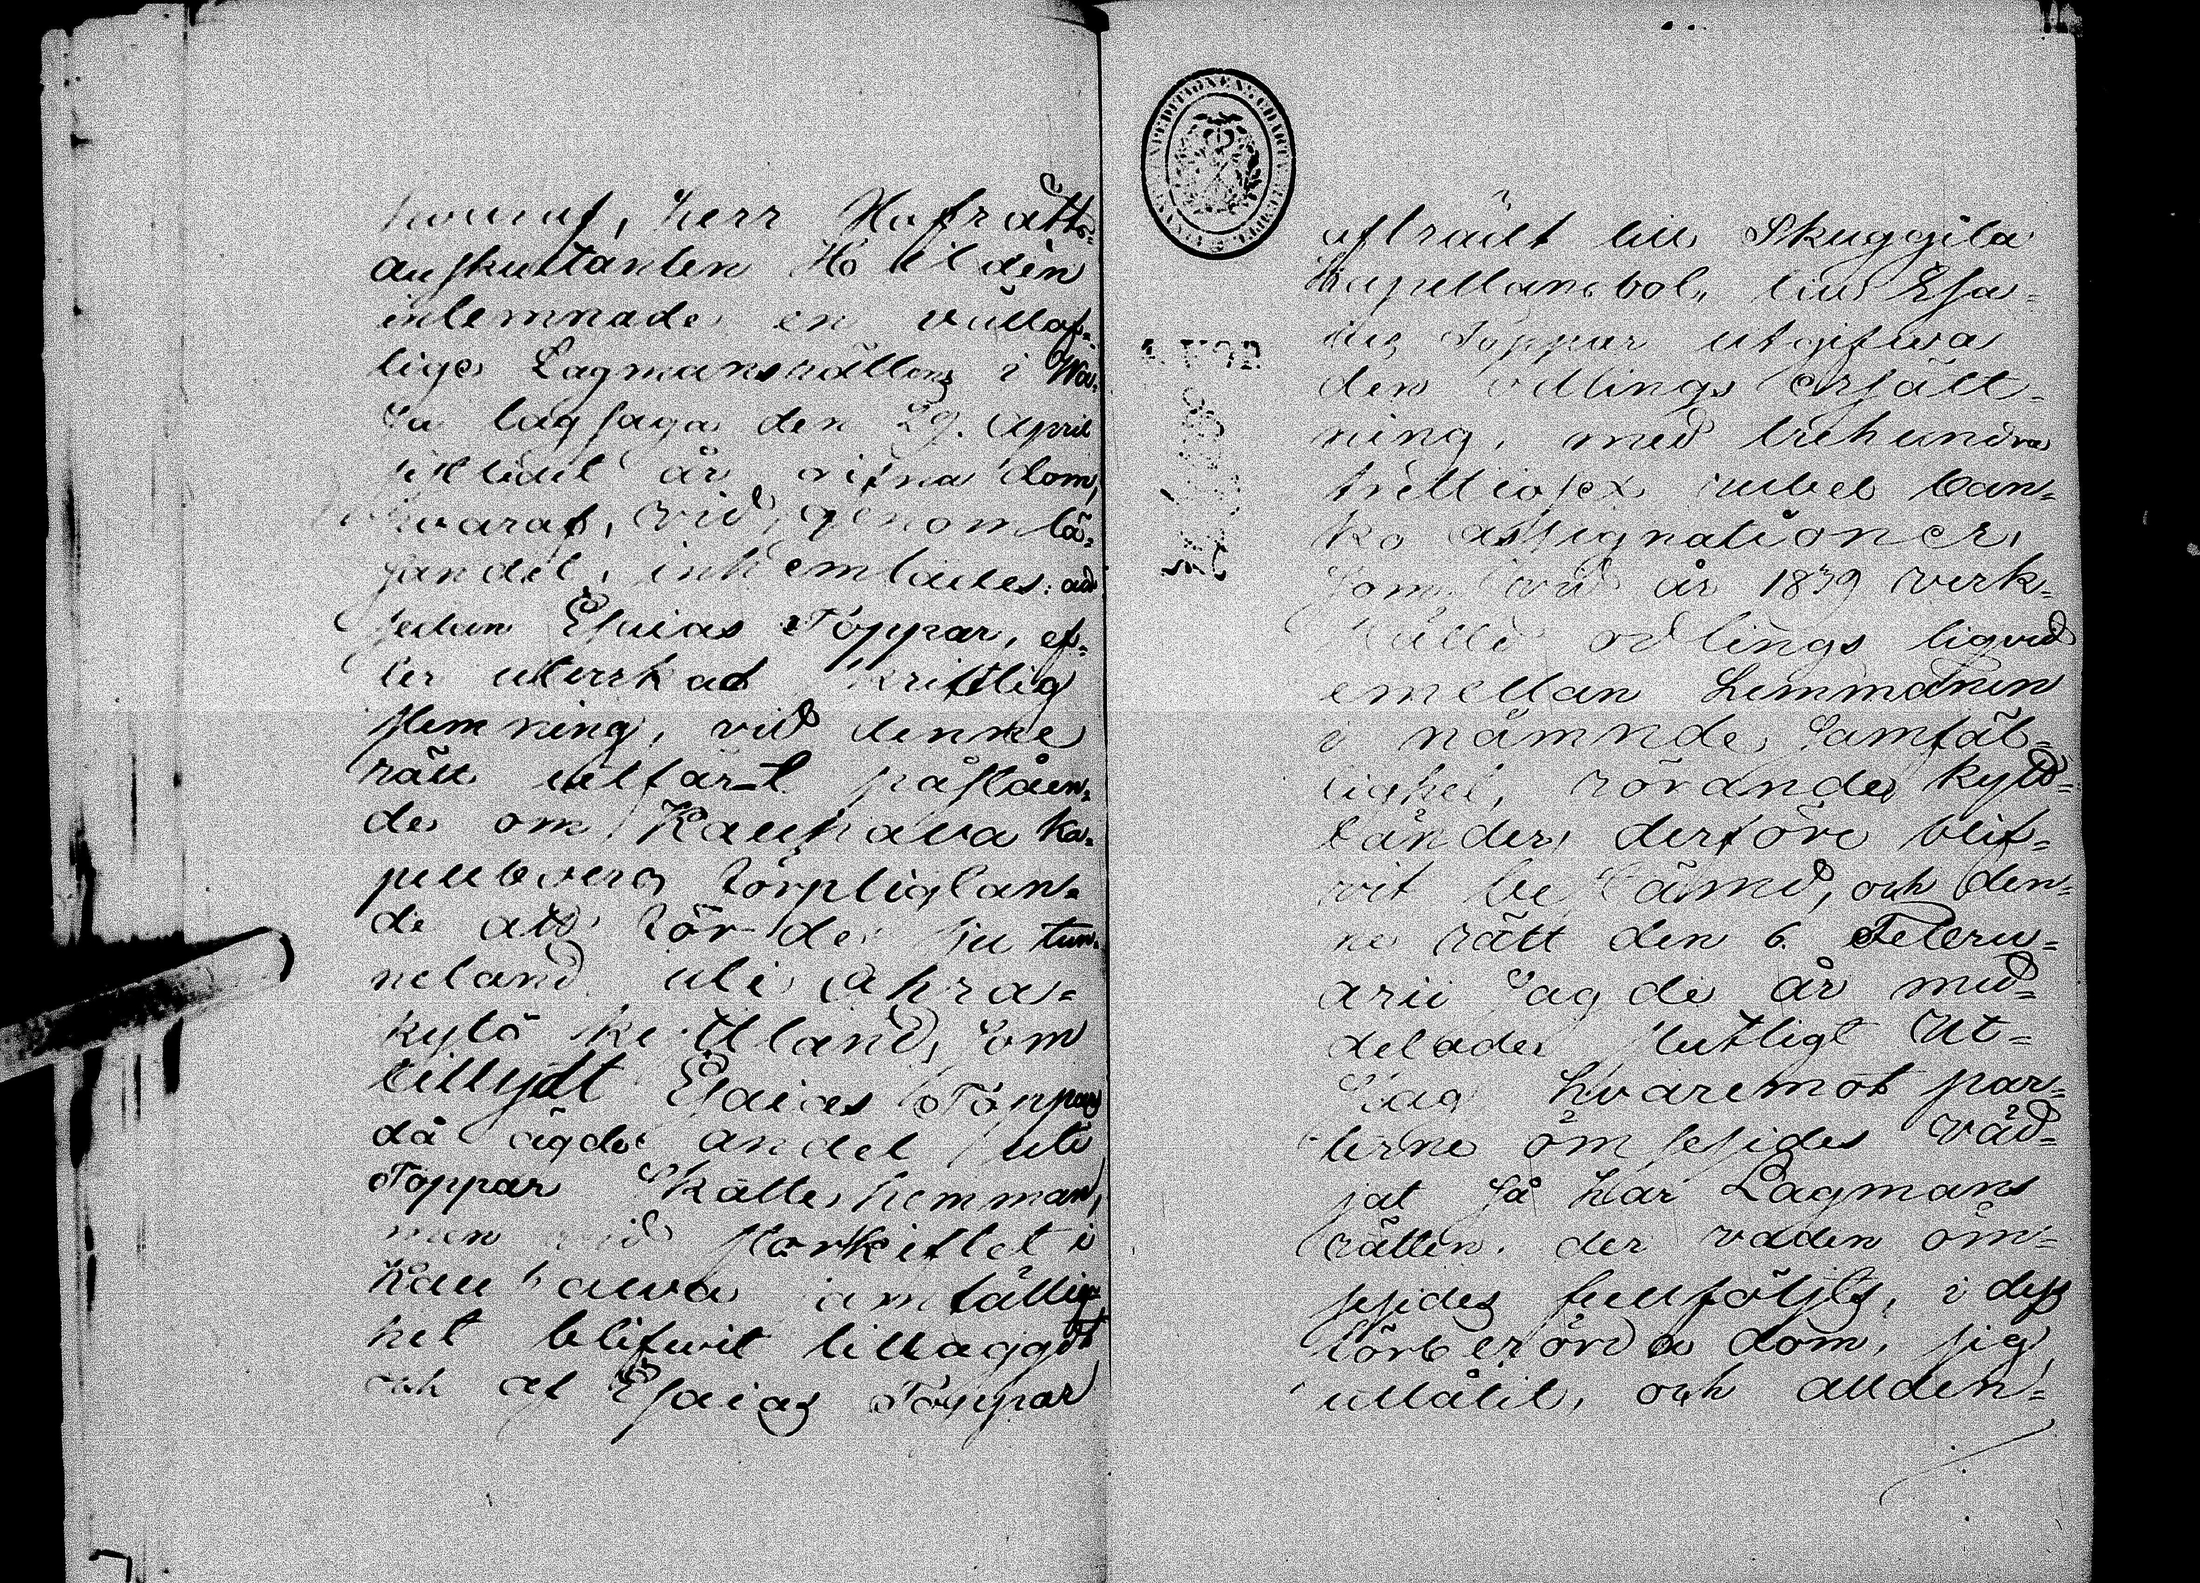 kommit, herr Hofrätts-
auskultanten Höckdin
inlemnade en vällof-
lige Lagmansrättens i Wa-
sa lagsaga den 29. April
sistledit år gifna dom,
hvaraf, vid genomlä-
sandet, inhemtades: att
sedan Esaias Töppar, ef-
ter utverkad skriftlig
stemning, vid denne
rätt utfört påståen-
de om Kauhava ka-
pellboers förpligtan-
de att för de sju tun-
neland uti Ahra-
kytö kettland, som
tillhördt Esaias Töppars
då ägde andel uti
Töppar Skatte hemman,
men vid storskiftet i
Kauhawa samfällig-
het blifwit tillaggdt
och af Esaias Töppar
afträdt till Skuggila
Kapellansbol, till Esa-
ias Töppar utgifwa
den odlings ersätt-
ning, med trehundra
trettiosex rubel ban-
ko assignationer,
som vid år 1839 verk-
ställd odlings liqvid
emellan hemmanen
i nämnde Samfäl-
lighet, rörande kytö-
länder, derföre blif-
vit bestämd, och den-
ne rätt den 6. Februa-
arii sagde år med-
delade slutligt Ut-
slag hvaremot par-
terne ömsesides väd-
jat så har Lagmans
rätten, der vaden öm-
sesides fullföljts, i dess
förberörda dom, sig
utlåtit, och allden-